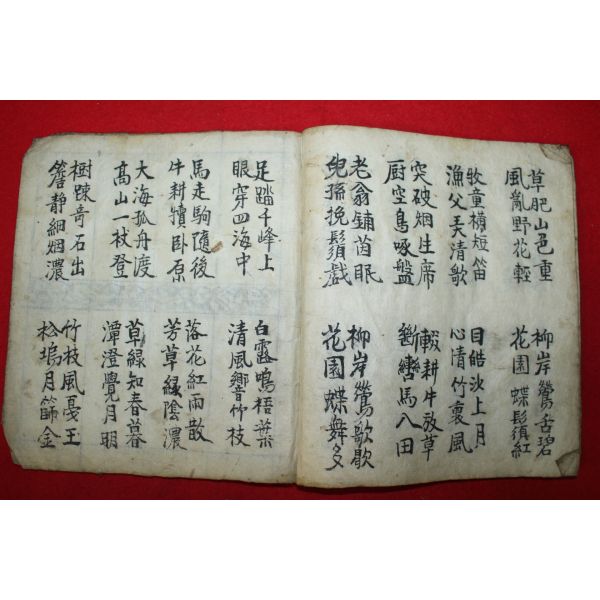 草肥山邑重
風亂野花輕
牧童橫短笛
漁父弄清歌
突破烟生席
厨空鳥啄盤
老翁鋪茵眠
兒孫挽鬚戲
柳岸鶯舌碧
花園蝶鬚紅
目皓沙上月
心情竹裏風
輟耕牛放草
斷轡馬入田
柳岸鶯歌歇
花園蝶舞多
足踏千峰上
眼穿四海中
馬走駒隨後
牛耕犢臥原
大海孤舟渡
高山一杖登
樹踈奇石出
簷静細烟濃
白露鳴梧葉
清風響竹枝
落花紅雨散
芳草綠陰濃
草綠知春暮
潭澄覺月明
竹枝風憂玉
松塢月篩金